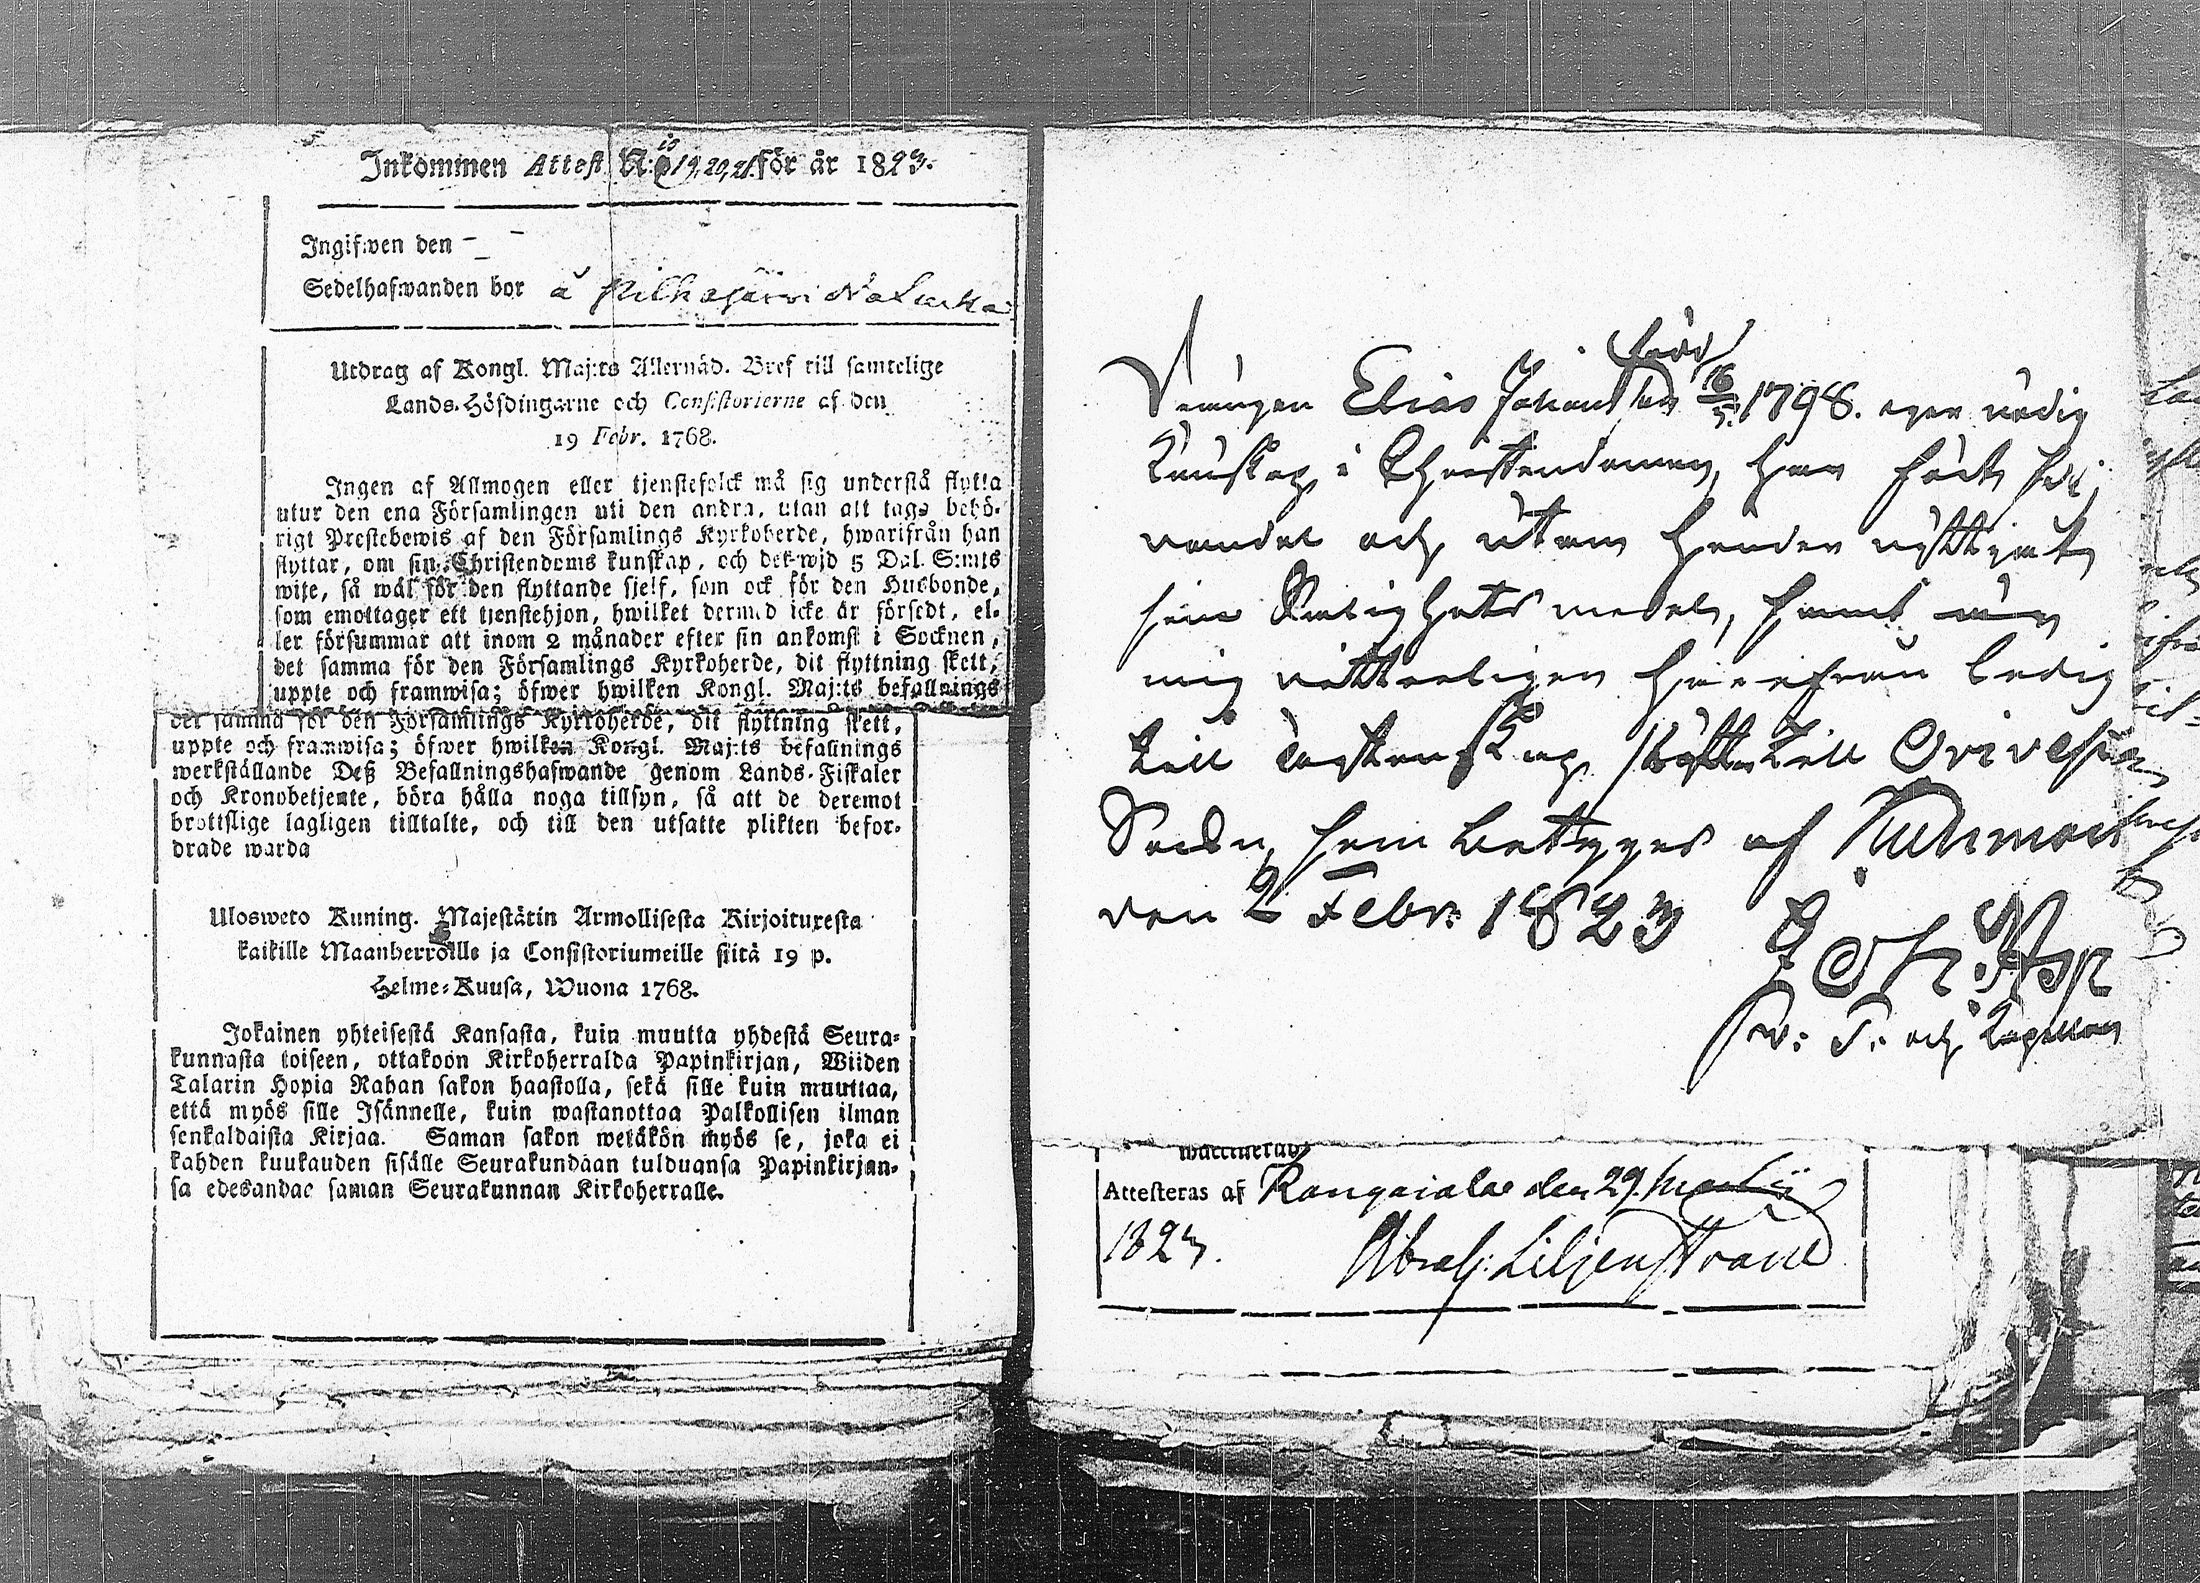 Inkommen Attest N:o 19, 20, 21. för år 1823.
Ingifwen den - -
Sedelhafwanden bor å Pilkajärvi
Utdrag af Kongl. Maj:ts Allernåd. Bref till samtelige
Lands-Höfdingarne och Consistorierne af den
19 Febr. 1768.
Ingen af Allmogen eller tjenstefolck må sig understå flytta
utur den ena Församlingen uti den andra, utan att taga behö-
rigt Prestebewis af den Församlings Kyrkoherde, hwarifrån han
flyttar, om sin Christendoms kunskap, och det wid 5 Dal. S:mts
wite, så wäl för den flyttande sjelf, som ock för den Husbonde,
som emottager ett tjenstehjon, hwilket dermed icke är försedt, el-
ler försummar att inom 2 månader efter sin ankomst i Socknen,
det samma för den Församlings Kyrkoherde, dit flyttning skett,
uppte och framwisa; öfwer hwilken Kongl. Maj:ts befallnings
det samma för den Församlings Kyrkoherde, dit flyttning skett,
uppte och framwisa; öfwer hwilken Kongl. Maj:ts befallnings
werkställande Deß Befallningshafwande genom Lands-Fiskaler
och Kronobetjente, böra hålla noga tillsyn, så att de deremot
brottslige lagligen tilltalte, och till den utsatte plikten befor-
drade warda
Ulosweto Kuning. Majestätin Armollisesta Kirjoituxesta
kaikille Maanherroille ja Consistoriumeille siitä 19 p.
Helme-Kuusa, Wuona 1768.
Jokainen yhteisestä Kansasta, kuin muutta yhdestä Seura-
kunnasta toiseen, ottakoon Kirkoherralda Papinkirjan, Wiiden
Talarin Hopia Rahan sakon haastolla, sekä sille kuin muuttaa,
että myös sille Isännelle, kuin wastanottaa Palkollisen ilman
senkaldaista Kirjaa. Saman sakon wetäkön myös se, joka ei
kahden kuukauden sisälle Seurakundaan tulduansa Papinkirjan-
sa edesandac saman Seurakunnan Kirkoherralle.
född
Drängen Elias Johansson 16/5 1798. eger nödig
kunskap i Christendomen, har fört
vandel och utan hinder nyttjat
sine Salighets medel, samt
mig vitterligen härifrån ledig
till Egtenskap, flyttar till Orivesi
Sockn, som betygas af Kuhmois
den 2 Febr. 1823
Joh: Asp
v: P: och Kapellan
Attesteras af Kangasala den 29. Martii
1823.
Abrah: Liljenstrand